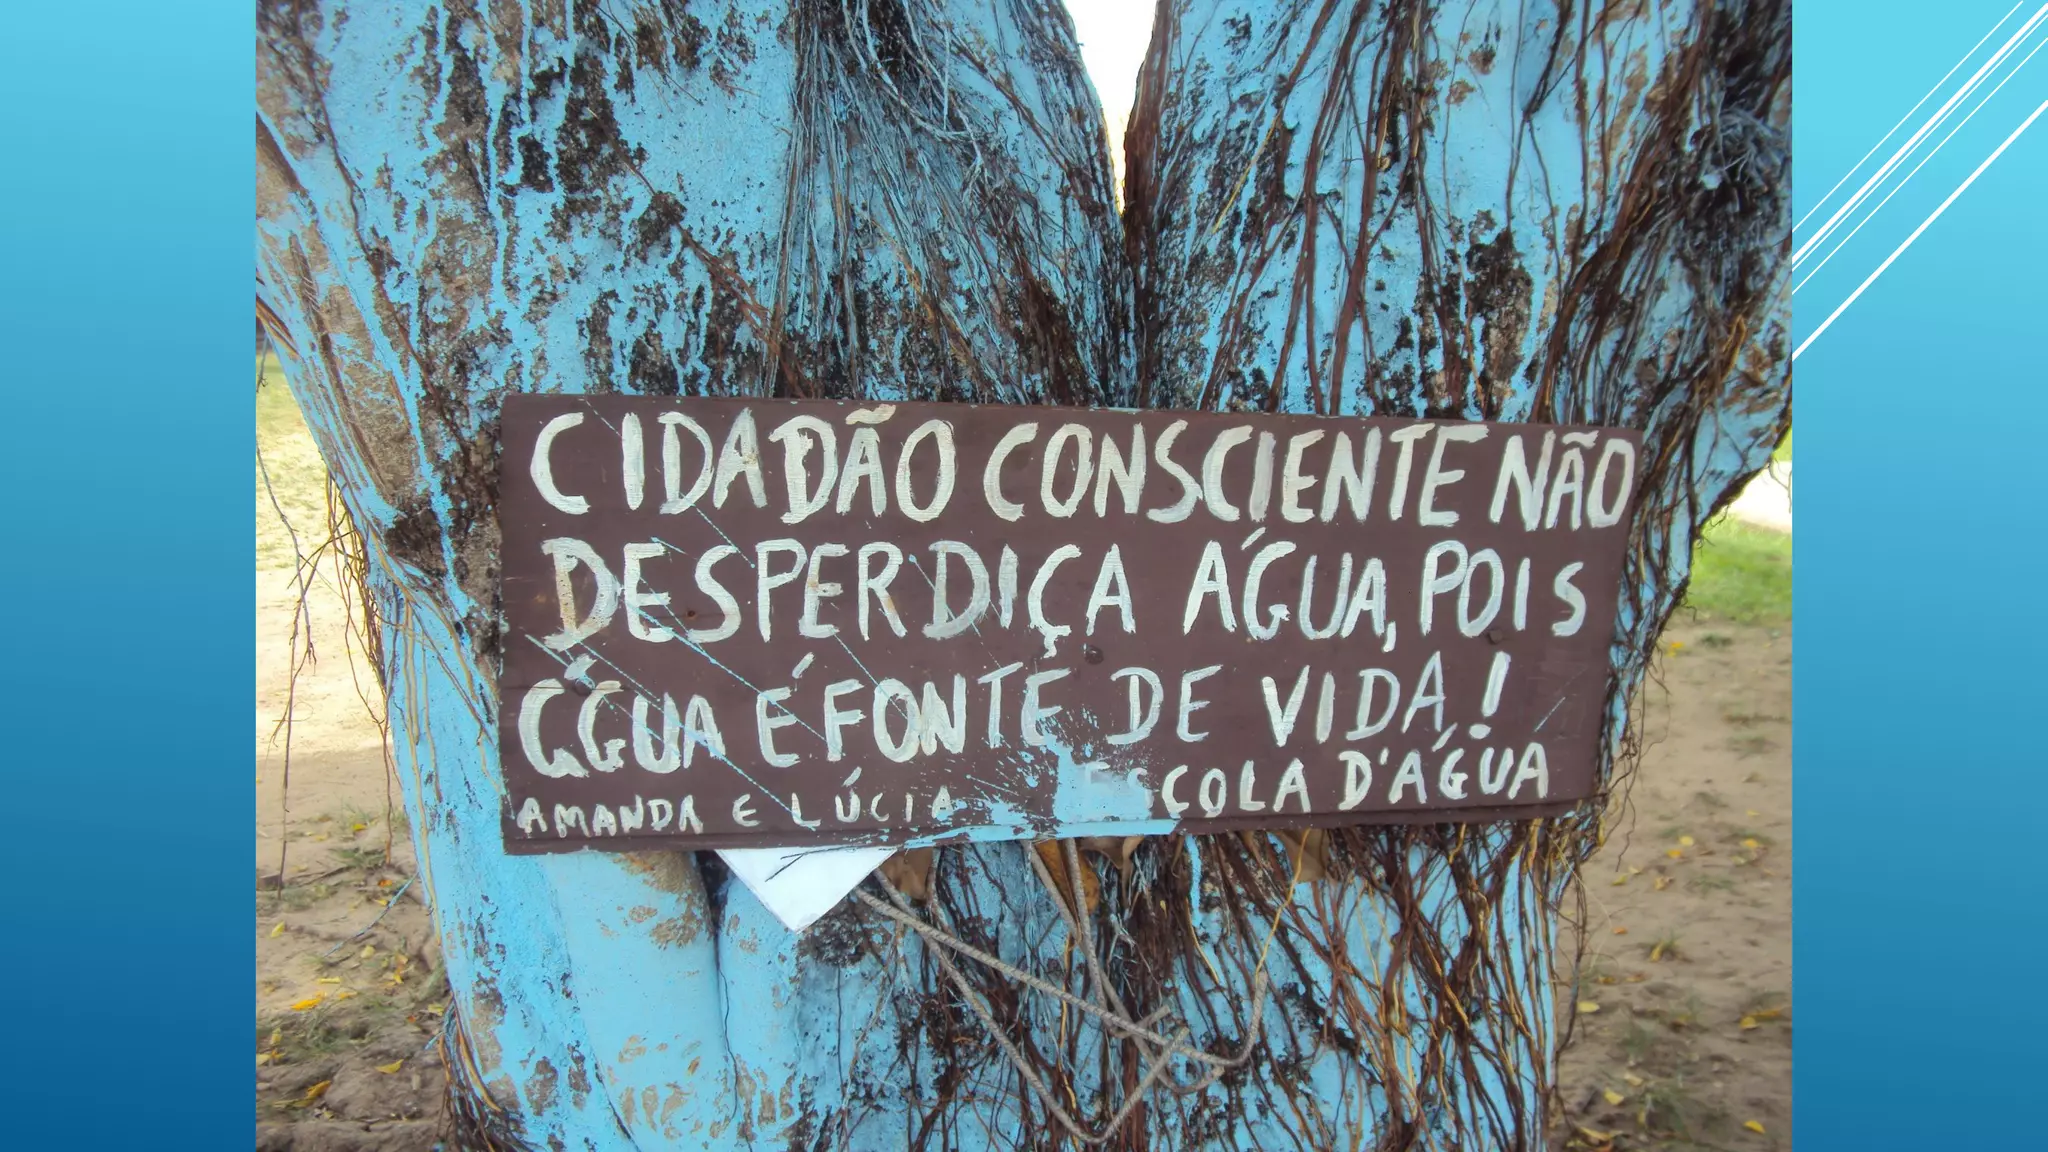 CIDADÃO CONSCIENTE NÃO
DESPERDIÇA ÁGUA, POIS
ÁGUA É FONTE DE VIDA!
AMANDA E LÚCIA ESCOLA D'ÁGUA